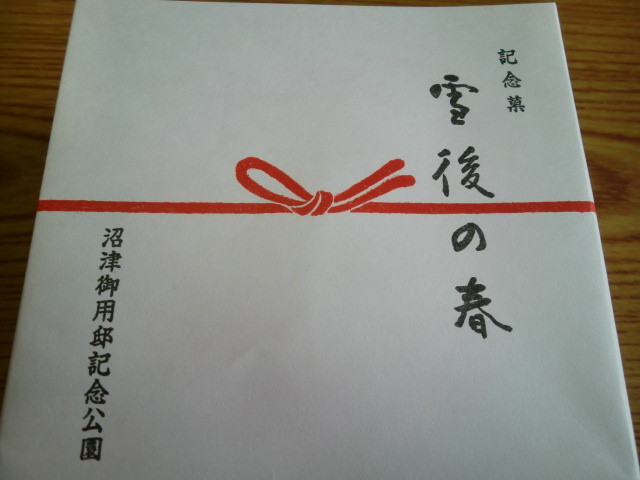 記念菓
雪後の春
沼津御用邸記念公園